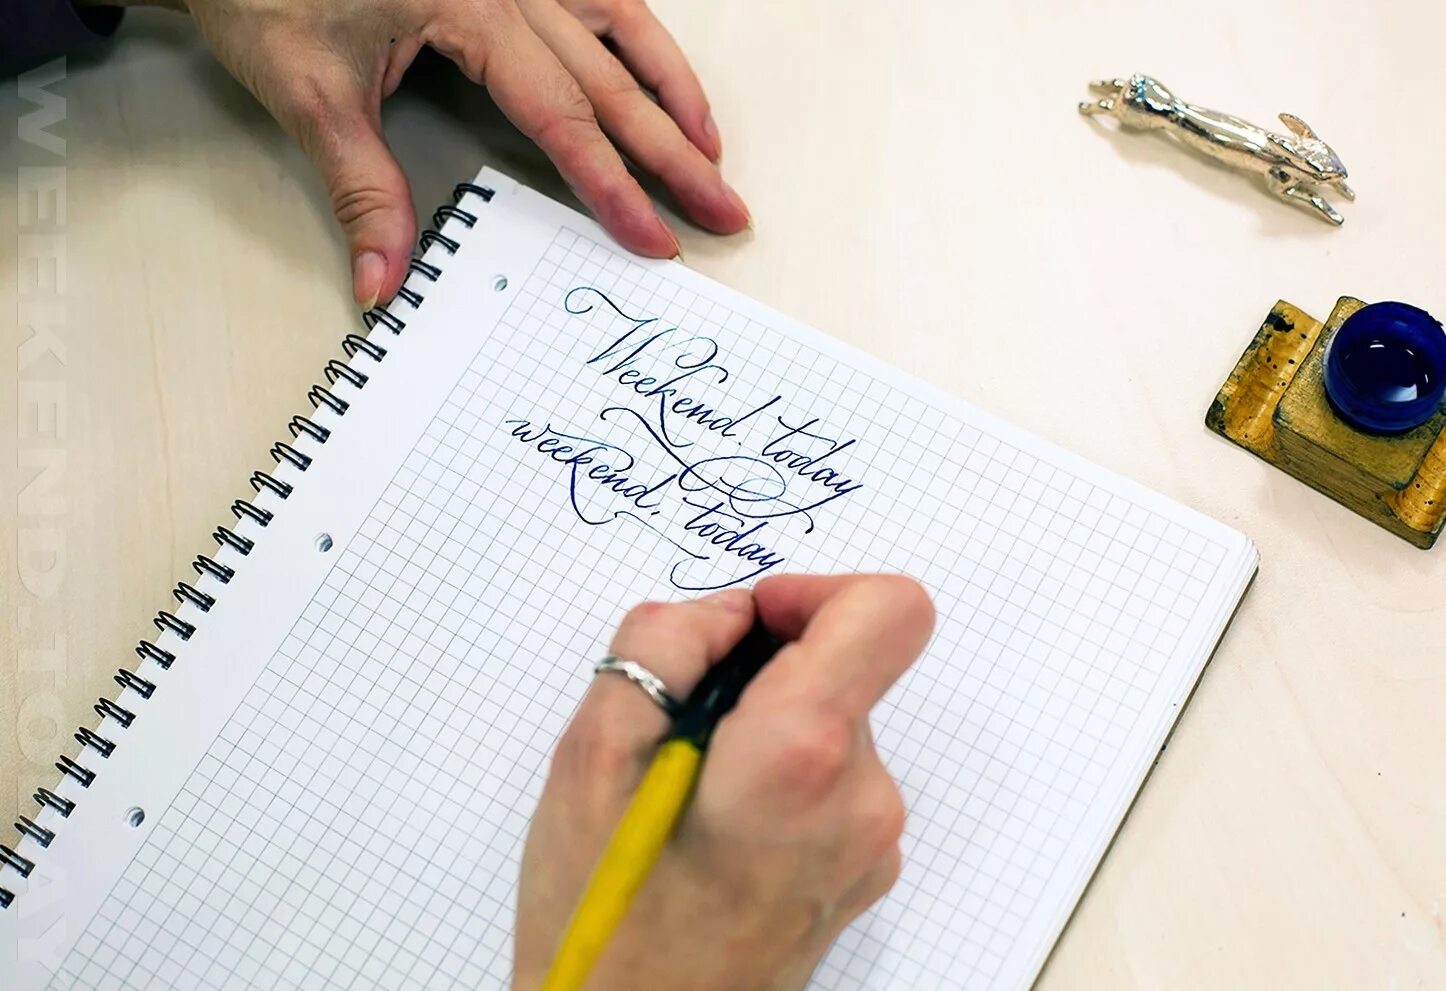 Weekend.today
weekend.today
WEEKEND.TODAY